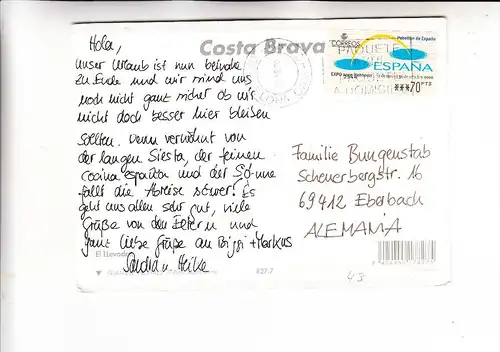 Hola,
Costa Brava
unser Urlaub ist nun beinahe
zu Ende und wir sind uns
noch nicht ganz sicher ob wir
nicht doch besser hier bleiben
sollten. Denn verwöhnt von
der langen Siesta, der feinen
cocina española und der Sonne
fällt die Abreise schwer! Es
geht uns allen sehr gut, viele
Grüße von den Eltern und
ganz liebe Grüße an Biggi + Markus
Sandra u. Heike
El Llevador
827-7
CORREOS
Pabellón de España
ESPAÑA
***70 PTS
PAQUETE
A DOMICILIO
Familie Bungenstab
Scheuerbergstr. 16
69412 Eberbach
ALEMANIA
43